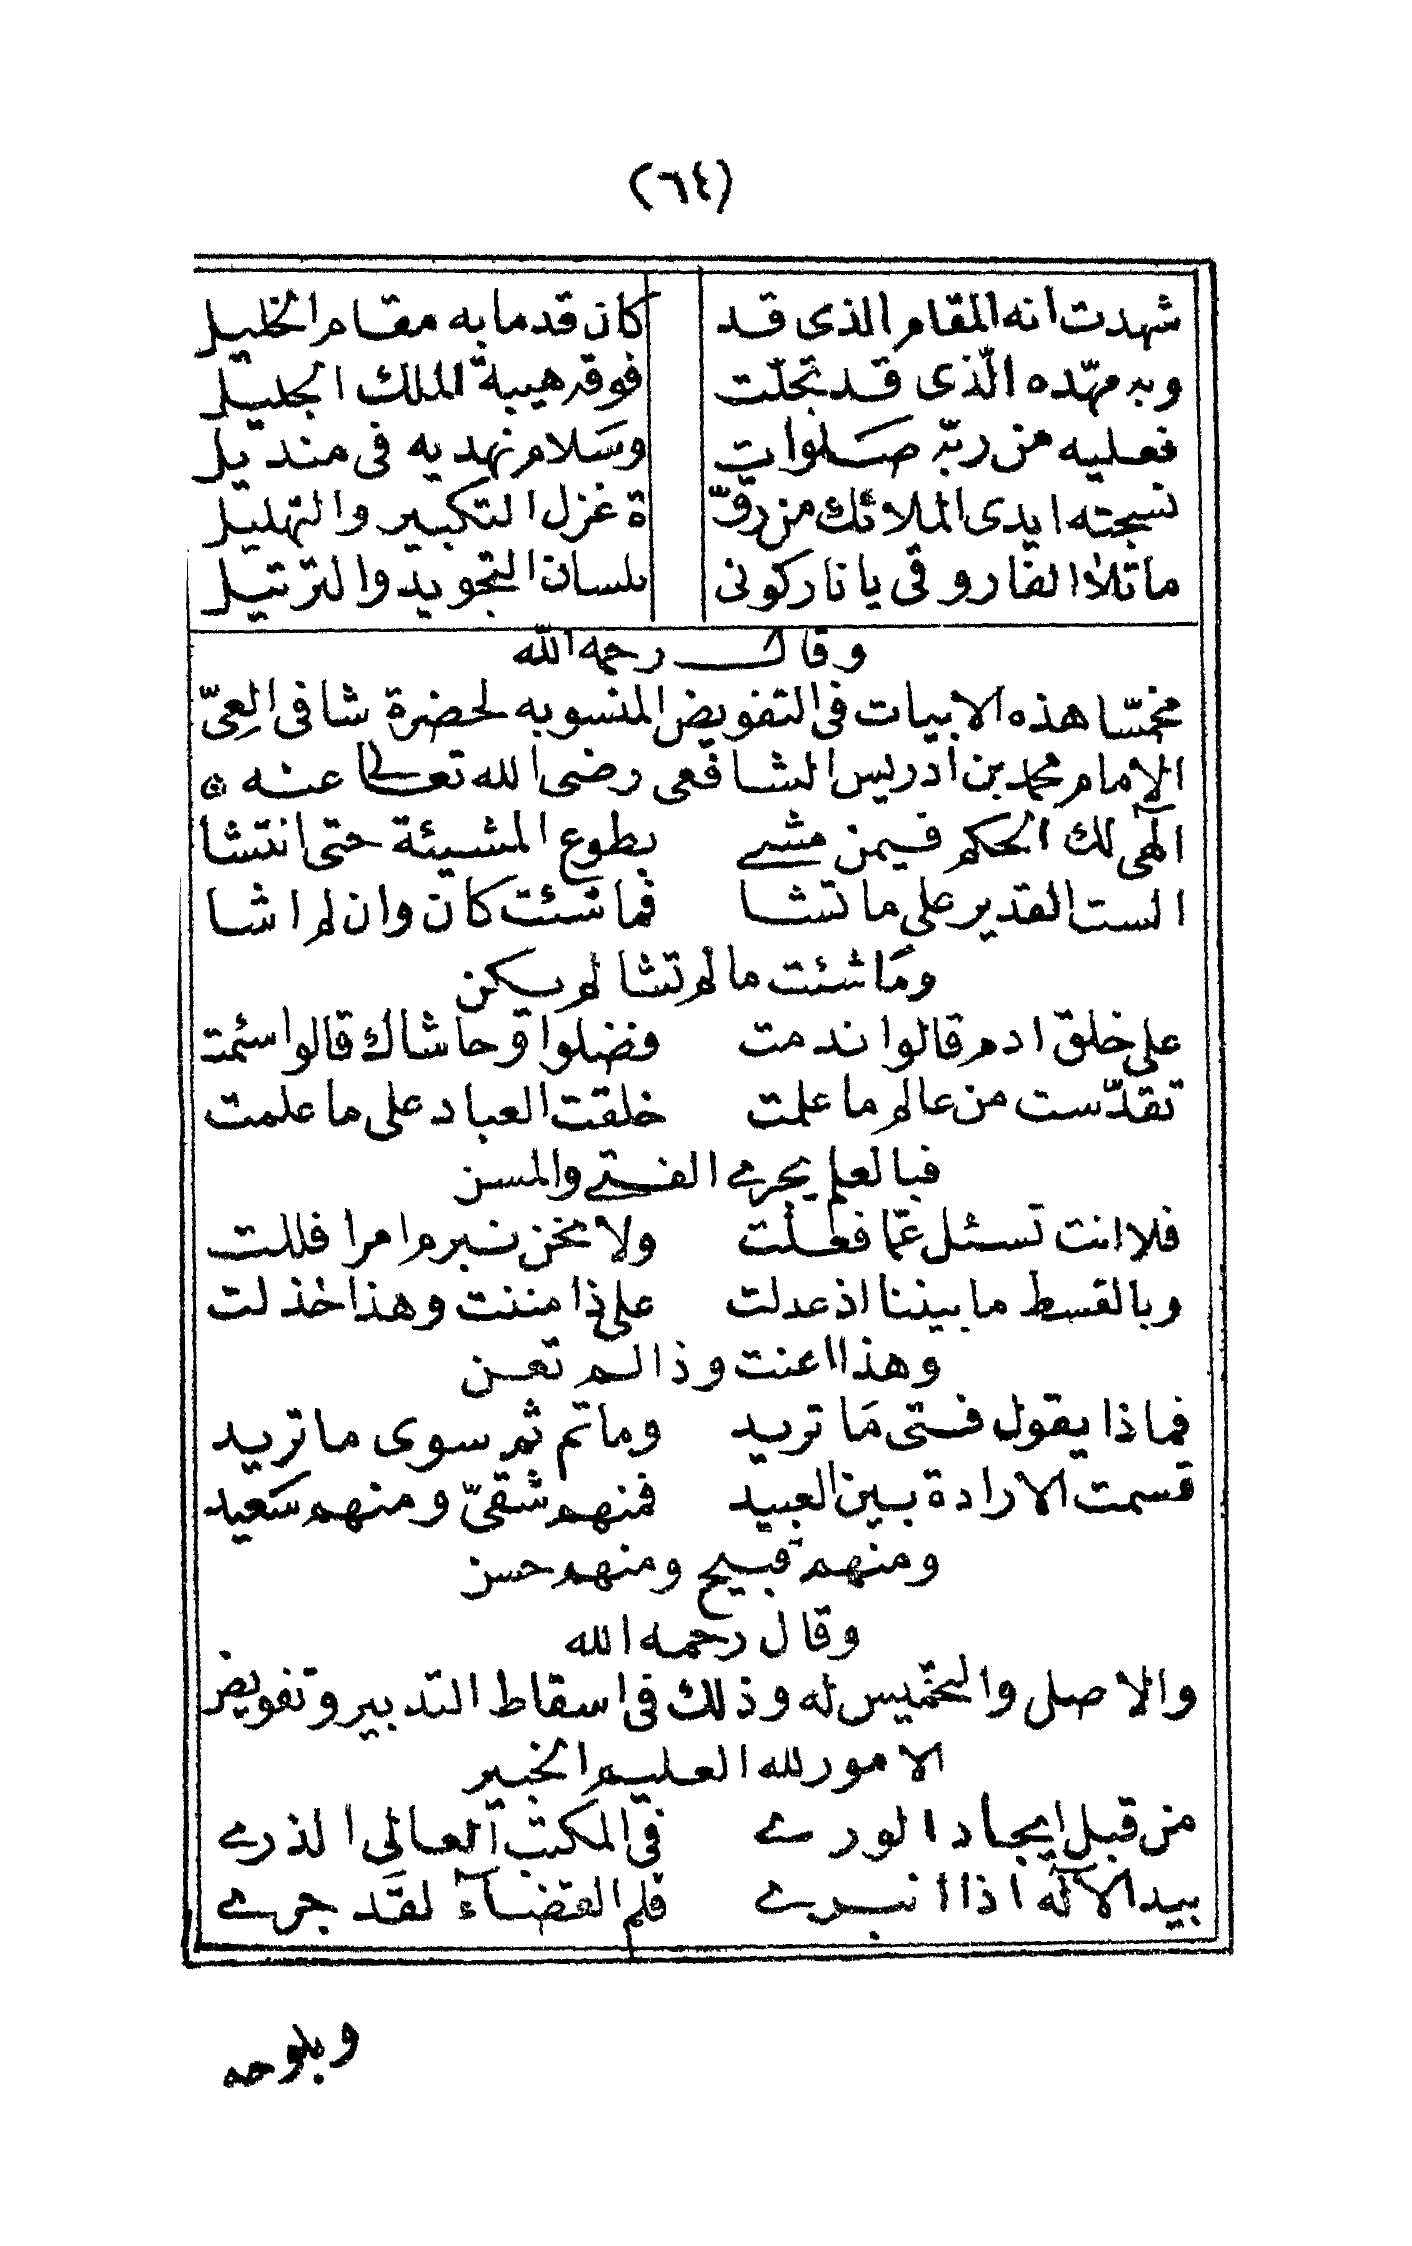 (٦٤)
شهدت انه المقام الذى قد كان قدما به مقام الخليل
وبه مهّده الّذى قد تجلّت فوقه هيبة الملك الجليل
فعليه من ربّه صلوات وسَلام نهديه فى منديل
نسجته ايدى الملائك من رقّ ة غزل التكبير والتهليل
ما تلا الفاروقى يا نار كونى بلسان التجويد والترتيل
وقال رحمه الله
مخمسّا هذه الابيات فى التفويض المنسوبه لحضرة شافى العِىّ
الامام محمد بن ادريس الشافعى رضى الله تعالى عنه
الٓهى لك الحكم فيمن مشے بطوع المشيئة حتى انتشا
الست القدير على ما تشا فما شئت كان وان لم اشا
ومَا شئت ما لم تشا لم يكن
على خلق ادم قالوا ندمت وفضلوا وحاشاك قالوا سئمت
تقدّست من عالم ما علمت خلقت العباد على ما علمت
فبالعلم يجرے الفتے والمسن
فلا انت تسئل عمّا فعلت ولا نحن نبرم امرا فللت
وبالقسط ما بيننا اذ عدلت على ذا مننت وهذا خذلت
وهذا اعنت وذا لم تعن
فما ذا يقول فتى مَا تريد وما تم ثم سوى ما تريد
قسمت الارادة بين العبيد فمنهم شقىّ ومنهم سَعيد
ومنهم قبيح ومنهم حسن
وقال رحمه الله
والاصل والتخميس له وذلك فى اسقاط التدبير وتفويض
الامور لله العليم الخبير
من قبل ايجاد الورے فى المكتب العالى الذرے
بيد الآله اذا انبرے قلم القضآء لقَد جرے
وبلوحه